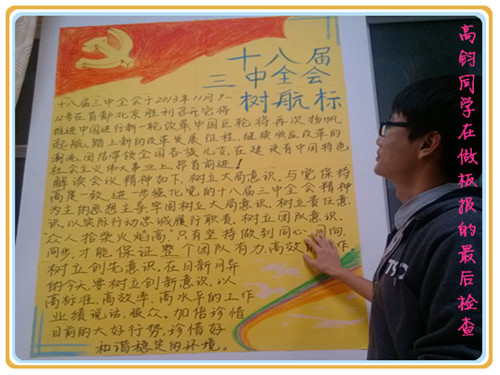 十八届
三中全会
树航标
十八届三中全会于2013年11月9-
12号在首都北京胜利召开它将
推进中国进行新一轮改革中国巨轮将再次扬帆
起航,踏上新的改革发展征程,继续响应改革的
潮流,团结带领全国各族儿女,在建设有中国特色
社会主义伟大事业上昂首前进!
解读会议精神如下,树立大局意识,与党保持
高度一致,进一步强化党的十八届三中全会精神
为主的思想主导牢固树立大局意识,树立责任意
识,以实际行动忠诚履行职责,树立团队意识,
众人拾柴火焰高,只有坚持做到同心、同向、
同步,才能保证整个团队有力,高效的工作,
树立创先意识,在日新月异
的今天要树立创新意识,以
高标准,高效率,高水平的工作
业绩说话,服众。加倍珍惜
目前的大好形势,珍惜好
和谐稳定的环境。
高钧同学在做板报的最后检查